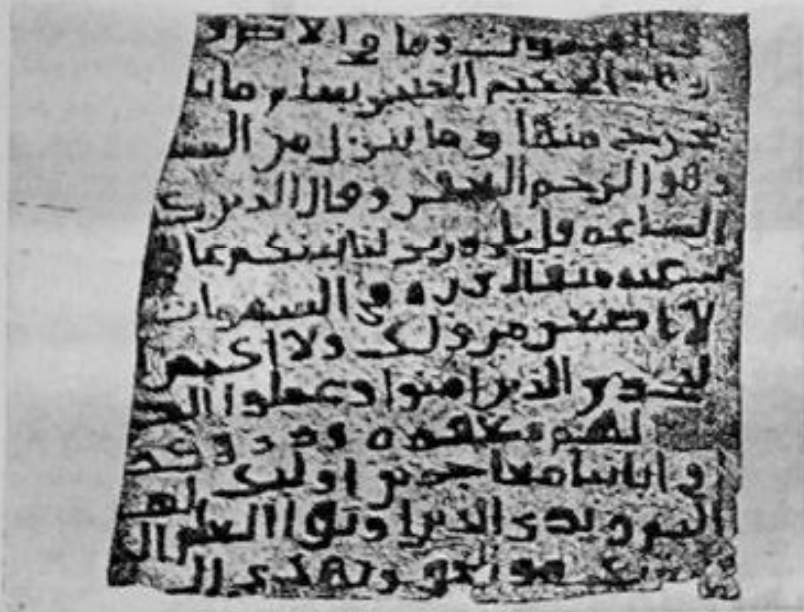 في السموت وما في الارض و
وهو الحكيم الخبير يعلم ما
يخرج منها وما ينزل من السما
وهو الرحيم الغفور وقال الذين ك
الساعه قل بلى وربي لتاتينكم عا
عنه مثقال ذره في السموات
لا اصغر من ذلك ولا اكبر
ليجزي الذين امنوا وعملوا الص
لهم مغفره ورزق
في اياتنا معاجزين اولئك لهم
اليم ويرى الذين اوتوا العلم ال
هو الحق ويهدي الى